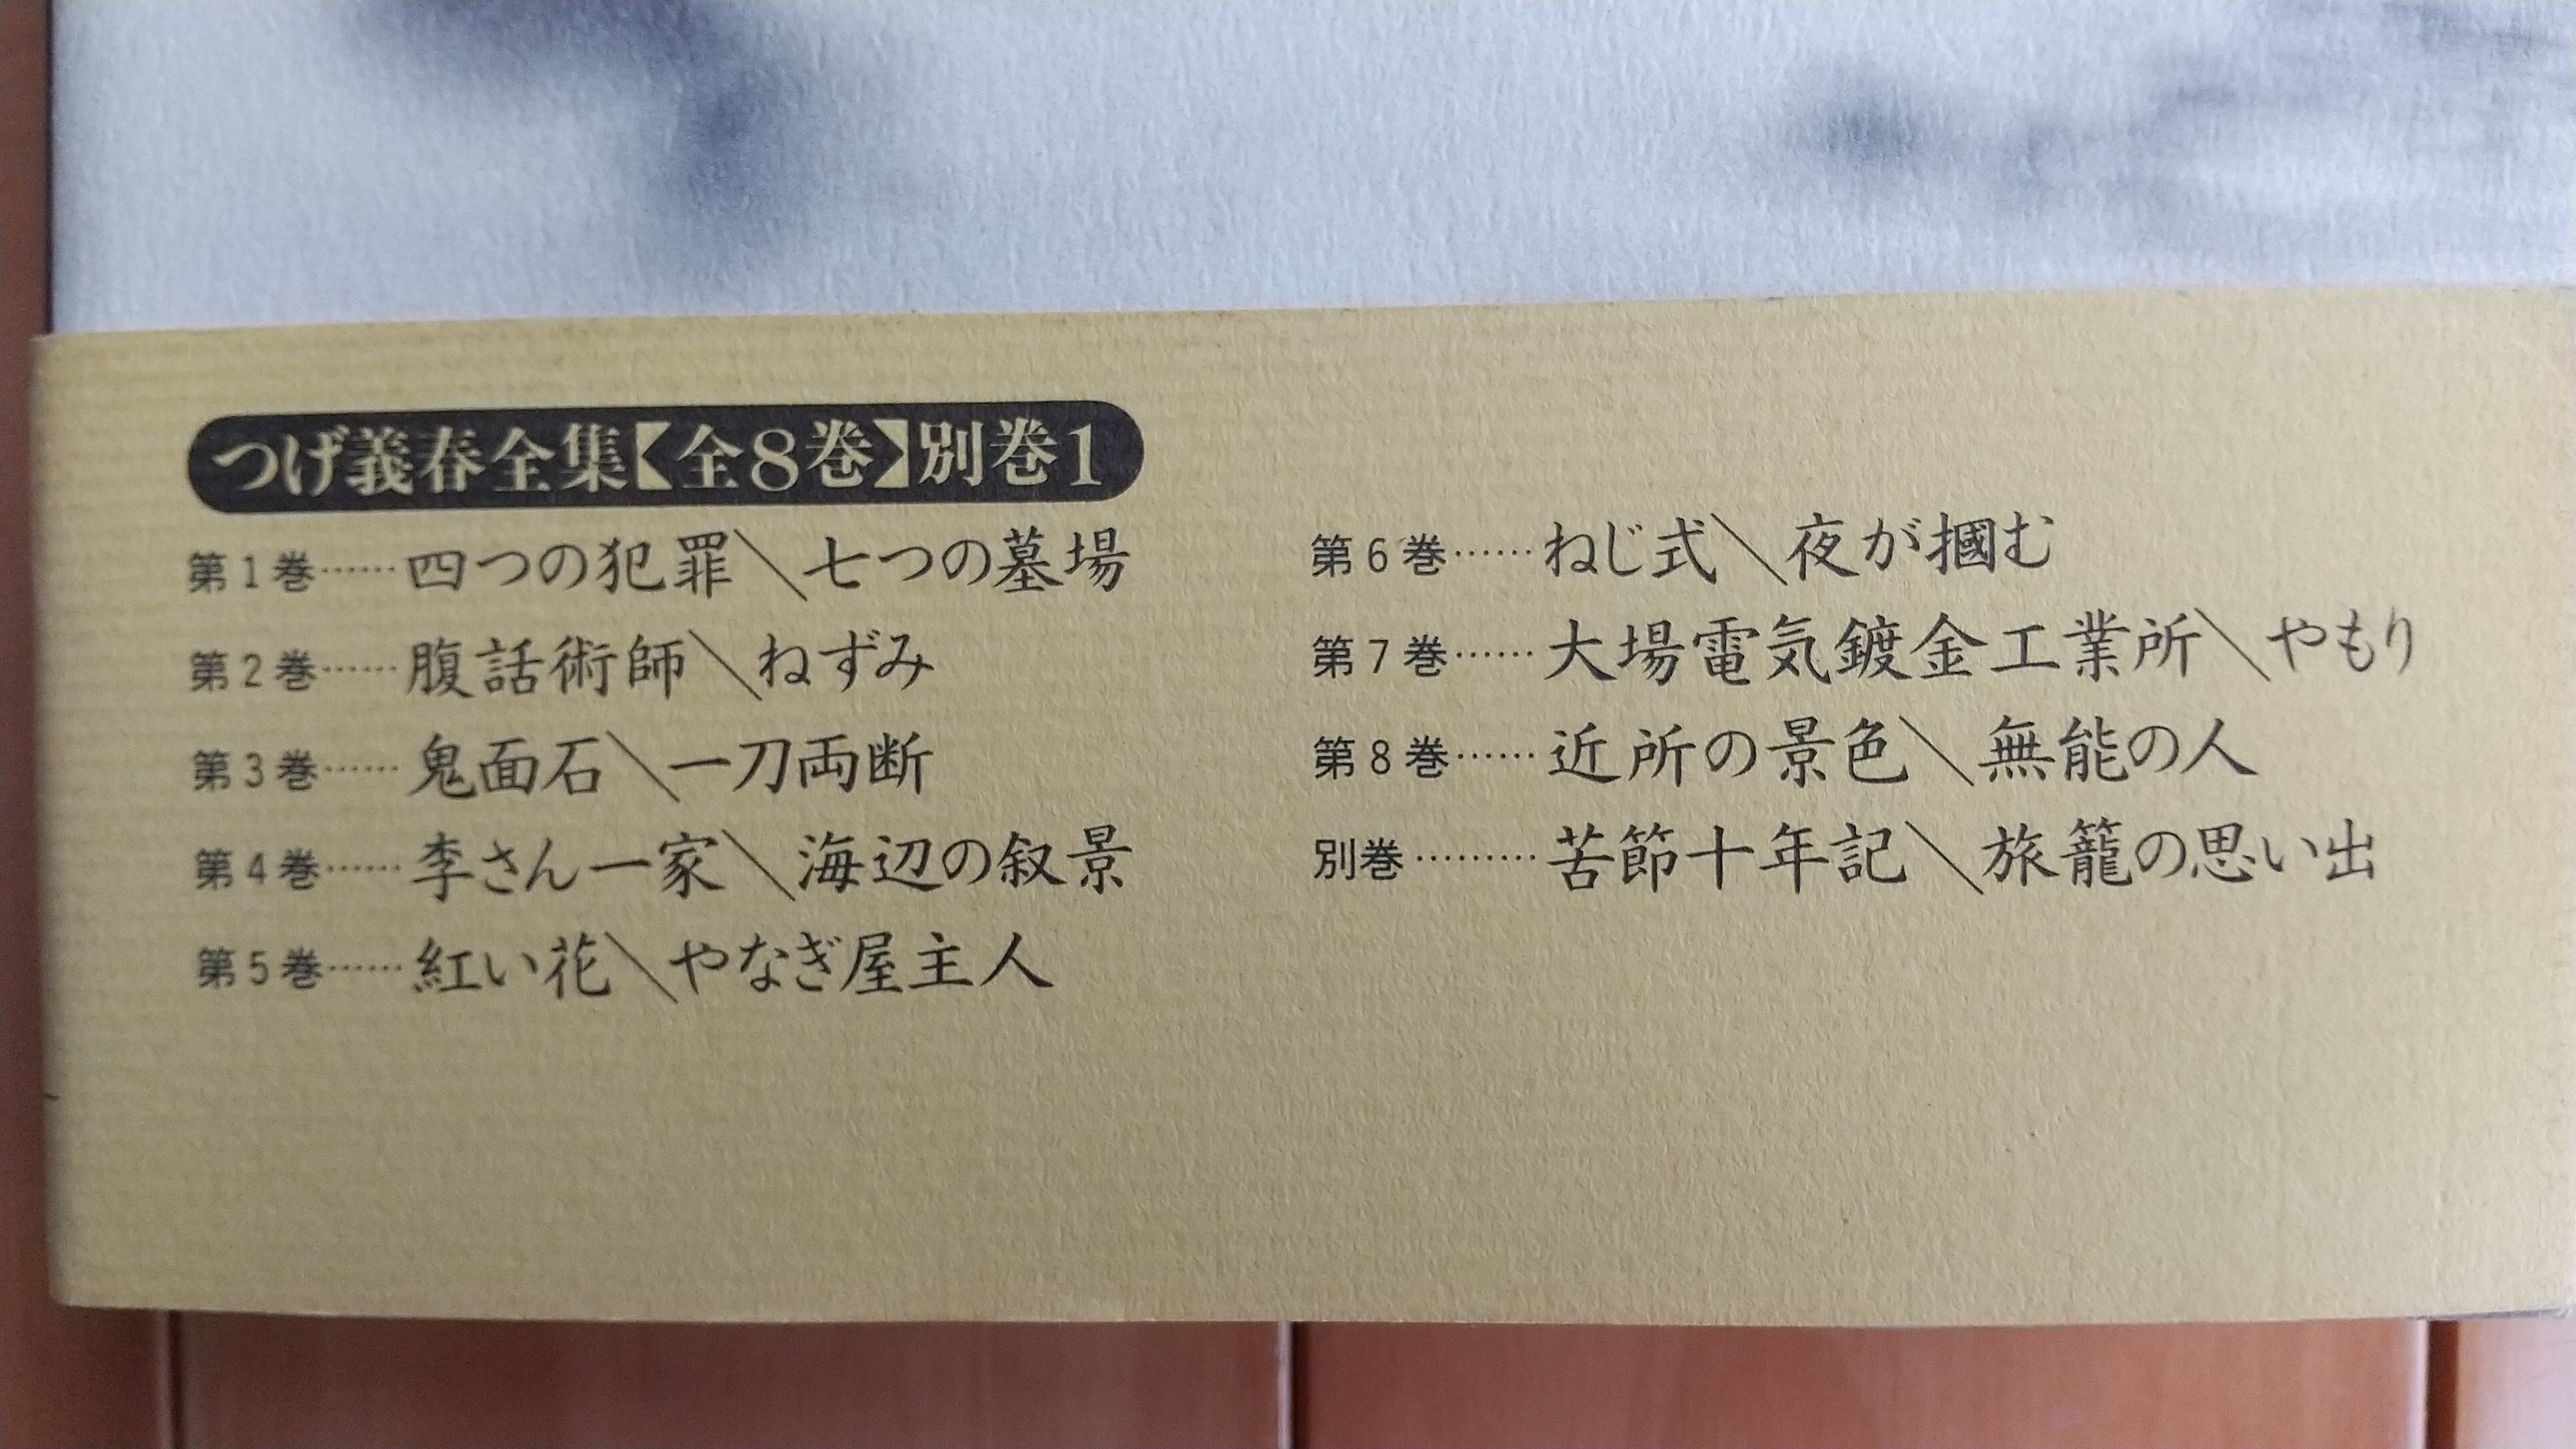 つげ義春全集【全8巻】別巻1
第1巻……四つの犯罪＼七つの墓場
第2巻……腹話術師＼ねずみ
第3巻……鬼面石＼一刀両断
第4巻……李さん一家＼海辺の叙景
第5巻……紅い花＼やなぎ屋主人
第6巻……ねじ式＼夜が摑む
第7巻……大場電気鍍金工業所＼やもり
第8巻……近所の景色＼無能の人
別巻………苦節十年記＼旅籠の思い出